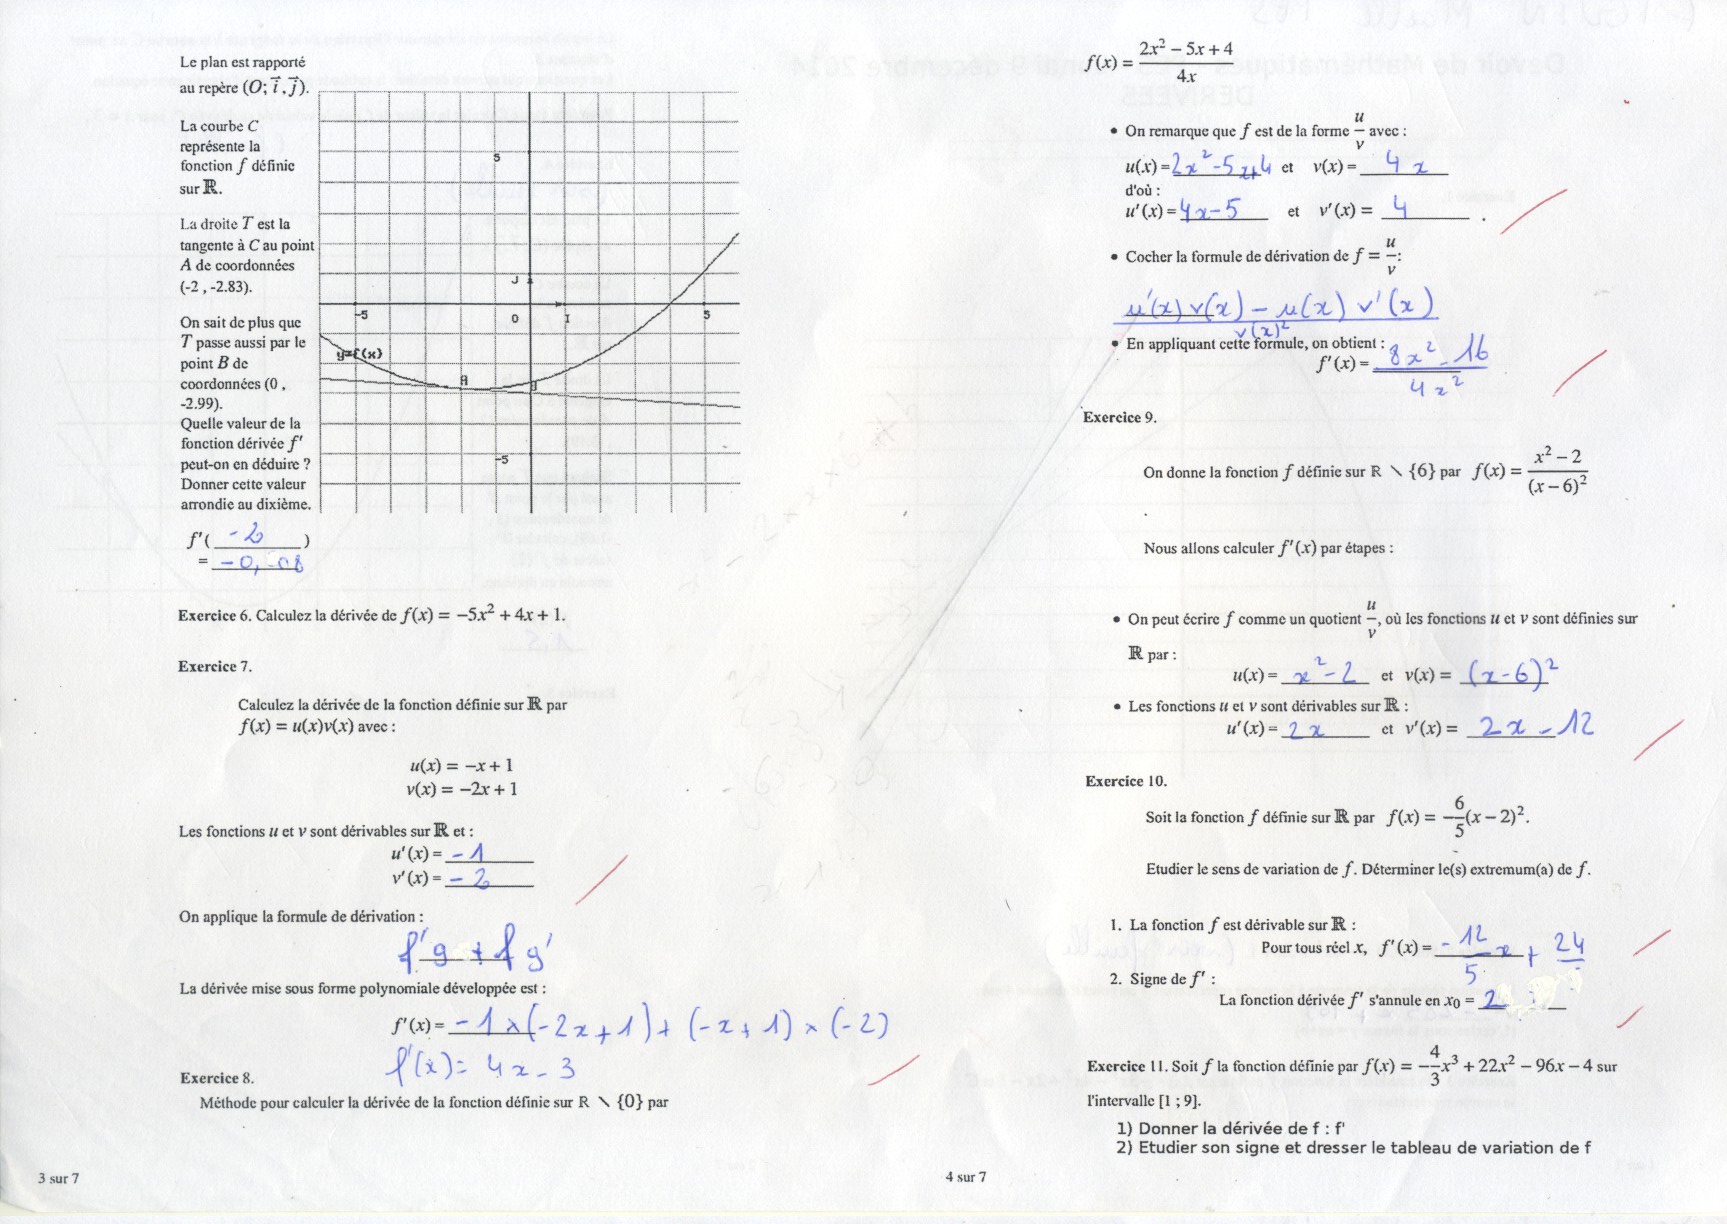 Le plan est rapporté
au repère (O; i⃗, j⃗).
La courbe C
représente la
fonction f définie
sur ℝ.
La droite T est la
tangente à C au point
A de coordonnées
(-2 , -2.83).
On sait de plus que
T passe aussi par le
point B de
coordonnées (0 ,
-2.99).
Quelle valeur de la
fonction dérivée f'
peut-on en déduire ?
Donner cette valeur
arrondie au dixième.
5
J
-5 O I 5
y=f(x)
A B
-5
f'( -2 )
= -0,08
Exercice 6. Calculez la dérivée de f(x) = −5x² + 4x + 1.
Exercice 7.
Calculez la dérivée de la fonction définie sur ℝ par
f(x) = u(x)v(x) avec :
u(x) = −x + 1
v(x) = −2x + 1
Les fonctions u et v sont dérivables sur ℝ et :
u'(x) = -1
v'(x) = -2
On applique la formule de dérivation :
f'g + f g'
La dérivée mise sous forme polynomiale développée est :
f'(x) = -1 × (-2x+1) + (-x+1) × (-2)
f'(x) = 4x - 3
Exercice 8.
Méthode pour calculer la dérivée de la fonction définie sur ℝ ∖ {0} par
3 sur 7
f(x) = (2x² − 5x + 4)/(4x)
• On remarque que f est de la forme u/v avec :
u(x) = 2x²-5x+4 et v(x) = 4x
d'où :
u'(x) = 4x-5 et v'(x) = 4 .
• Cocher la formule de dérivation de f = u/v:
(u'(x) v(x) - u(x) v'(x))/v(x)²
• En appliquant cette formule, on obtient :
f'(x) = (8x² - 16)/(4x²)
Exercice 9.
On donne la fonction f définie sur ℝ ∖ {6} par f(x) = (x² − 2)/(x − 6)²
Nous allons calculer f'(x) par étapes :
• On peut écrire f comme un quotient u/v, où les fonctions u et v sont définies sur
ℝ par :
u(x) = x²-2 et v(x) = (x-6)²
• Les fonctions u et v sont dérivables sur ℝ :
u'(x) = 2x et v'(x) = 2x - 12
Exercice 10.
Soit la fonction f définie sur ℝ par f(x) = −6/5(x − 2)².
Etudier le sens de variation de f. Déterminer le(s) extremum(a) de f.
1. La fonction f est dérivable sur ℝ :
Pour tous réel x, f'(x) = -12/5 x + 24/
2. Signe de f' :
La fonction dérivée f' s'annule en x₀ = 2
Exercice 11. Soit f la fonction définie par f(x) = −4/3x³ + 22x² − 96x − 4 sur
l'intervalle [1 ; 9].
1) Donner la dérivée de f : f'
2) Etudier son signe et dresser le tableau de variation de f
4 sur 7